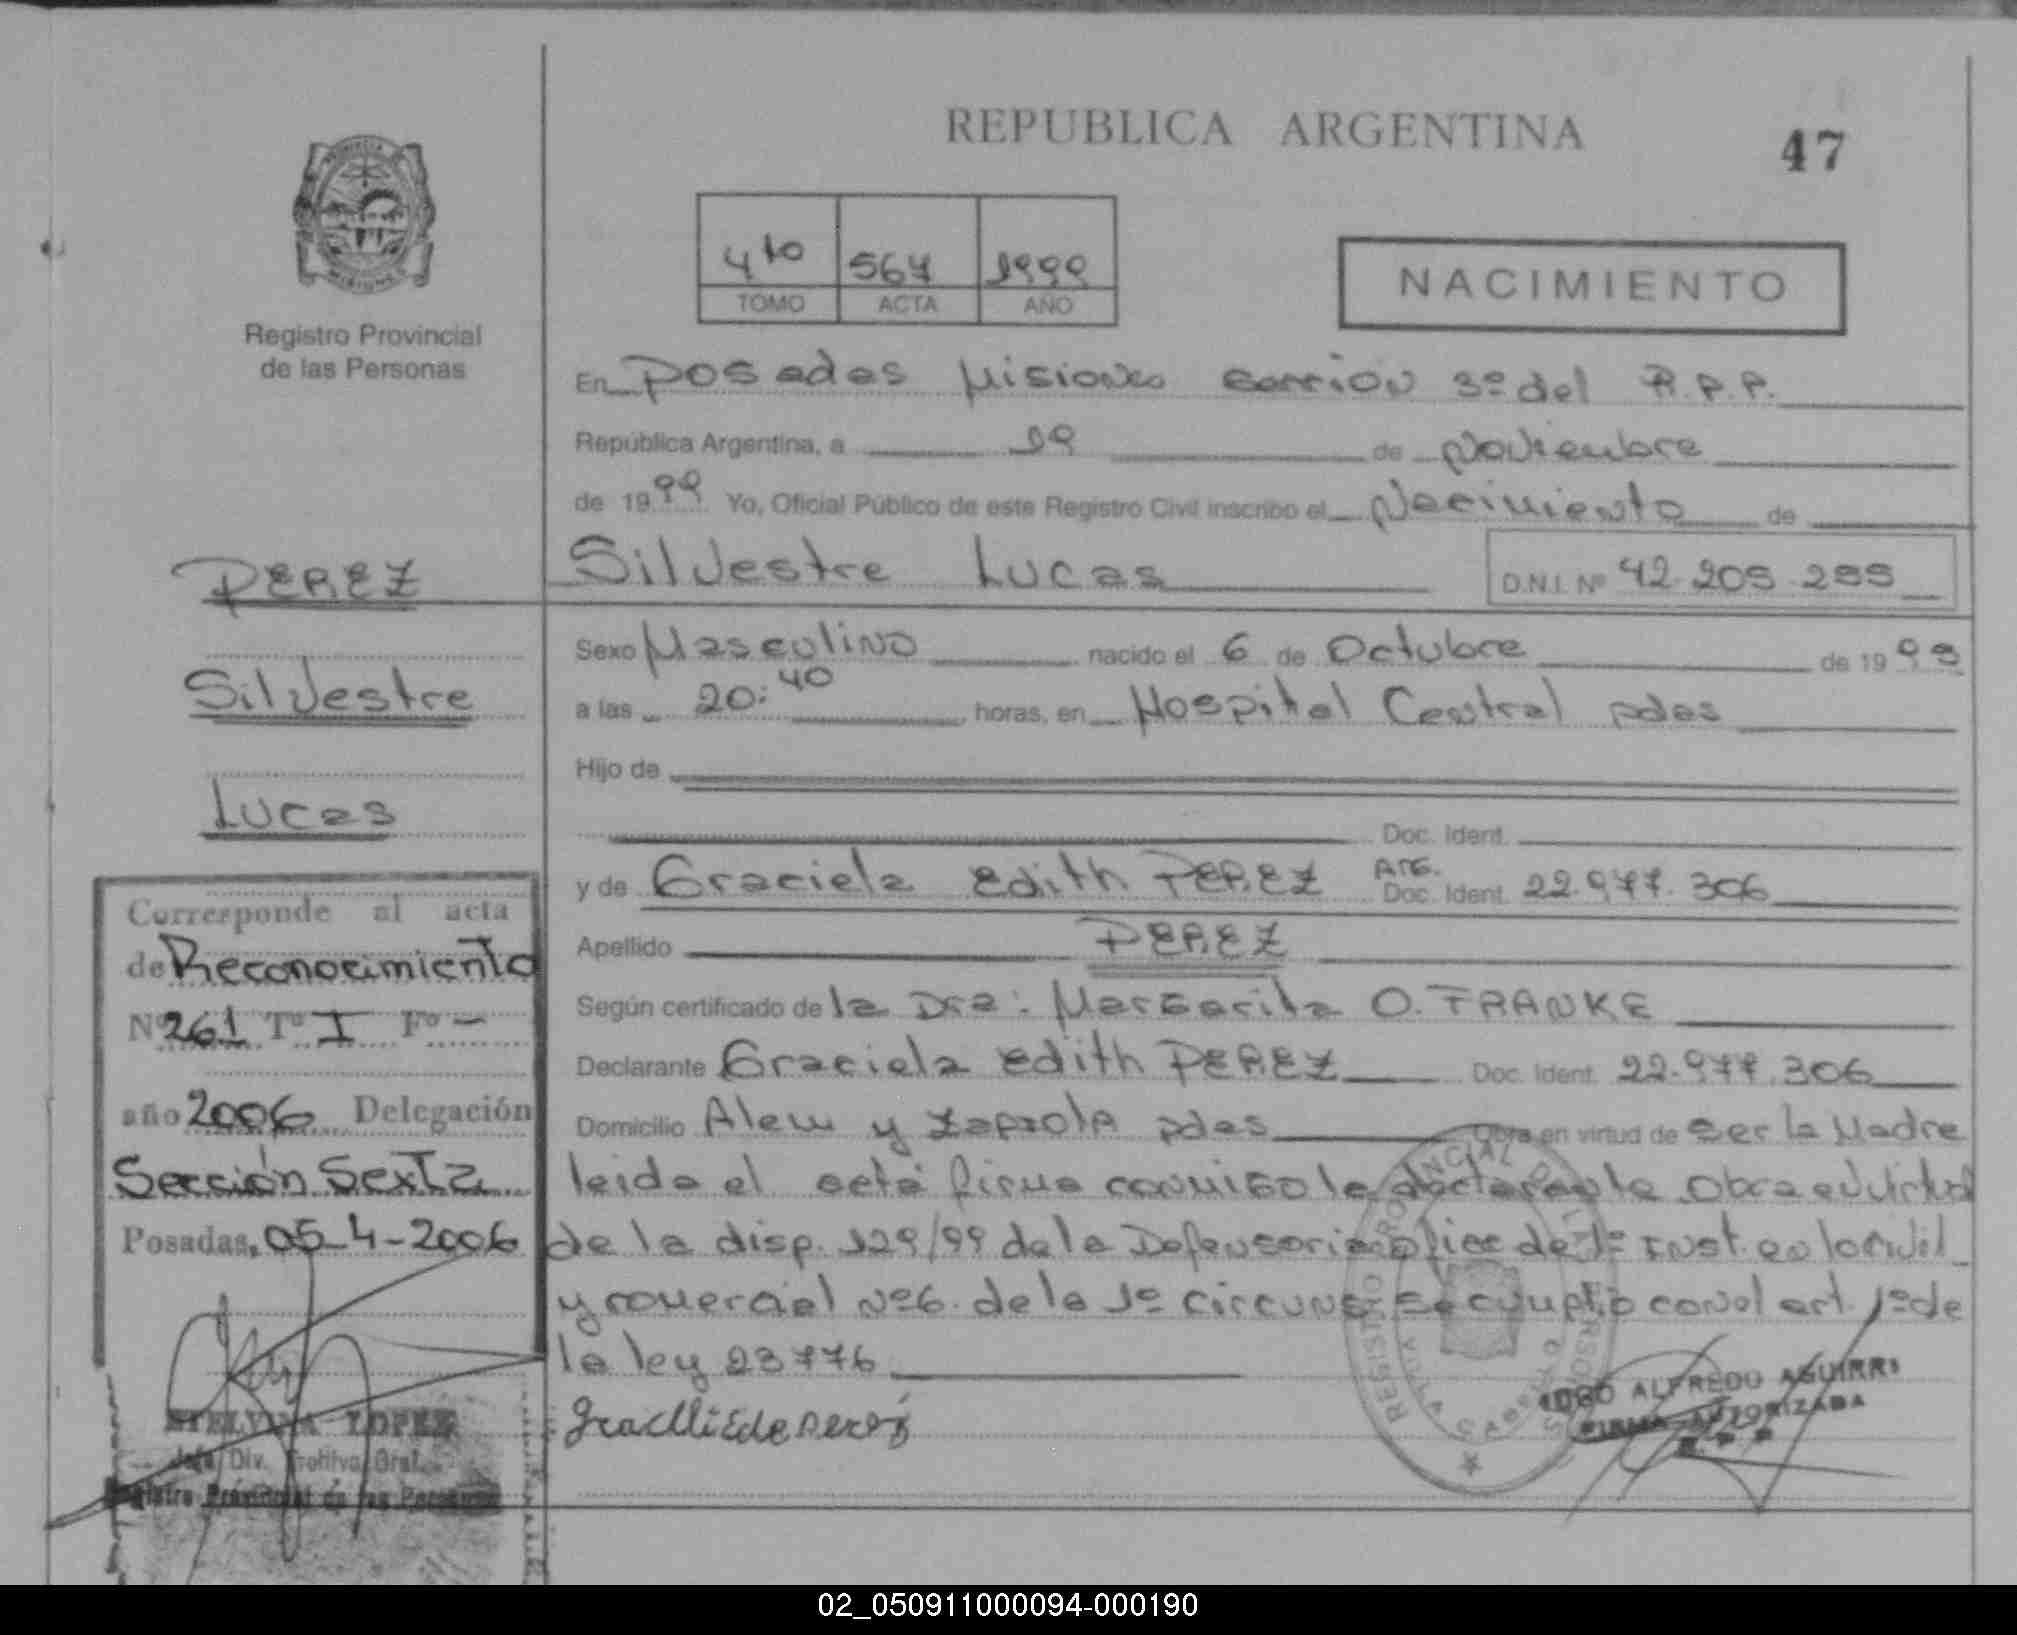 REPUBLICA ARGENTINA
47
Registro Provincial
de las Personas
4to 567 1999
TOMO ACTA AÑO
NACIMIENTO
En Posadas Misiones sección 3º del R.P.P.
República Argentina, a 19 de Noviembre
de 1999 Yo, Oficial Público de este Registro Civil inscribo el Nacimiento de
Silvestre Lucas D.N.I. Nº 42.205.255
Sexo Masculino nacido el 6 de Octubre de 1999
a las 20:40 horas, en Hospital Central pdas
Hijo de
Doc. Ident.
y de Graciela Edith PEREZ ARG. Doc. Ident. 22.977.306
Apellido PEREZ
Según certificado de la Dra: Margarita O. FRANKE
Declarante Graciela Edith PEREZ Doc. Ident. 22.977.306
Domicilio Alem y Zapiola pdas Obra en virtud de ser la Madre
leida el acta firma conmigo la declarante Obra e virtud
de la disp. 129/99 de la Defensoria ofice de 1º Inst. en lo civil
y comercial Nº6. de la 1º circuns se cumplio con el art. 1º de
la ley 23776
PEREZ
Silvestre
Lucas
Corresponde al acta
de Reconocimiento
Nº 261 Tº I Fº -
año 2006 Delegación
Sección Sexta
Posadas, 05-4-2006
STELVINA LOPEZ
Jefe Div. Gral.
Registro Provincial de las Personas
REGISTRO PROVINCIAL DE LAS PERSONAS
POSADAS
ALFREDO AGUIRRE
FIRMA AUTORIZADA
R.P.P
02_050911000094-000190